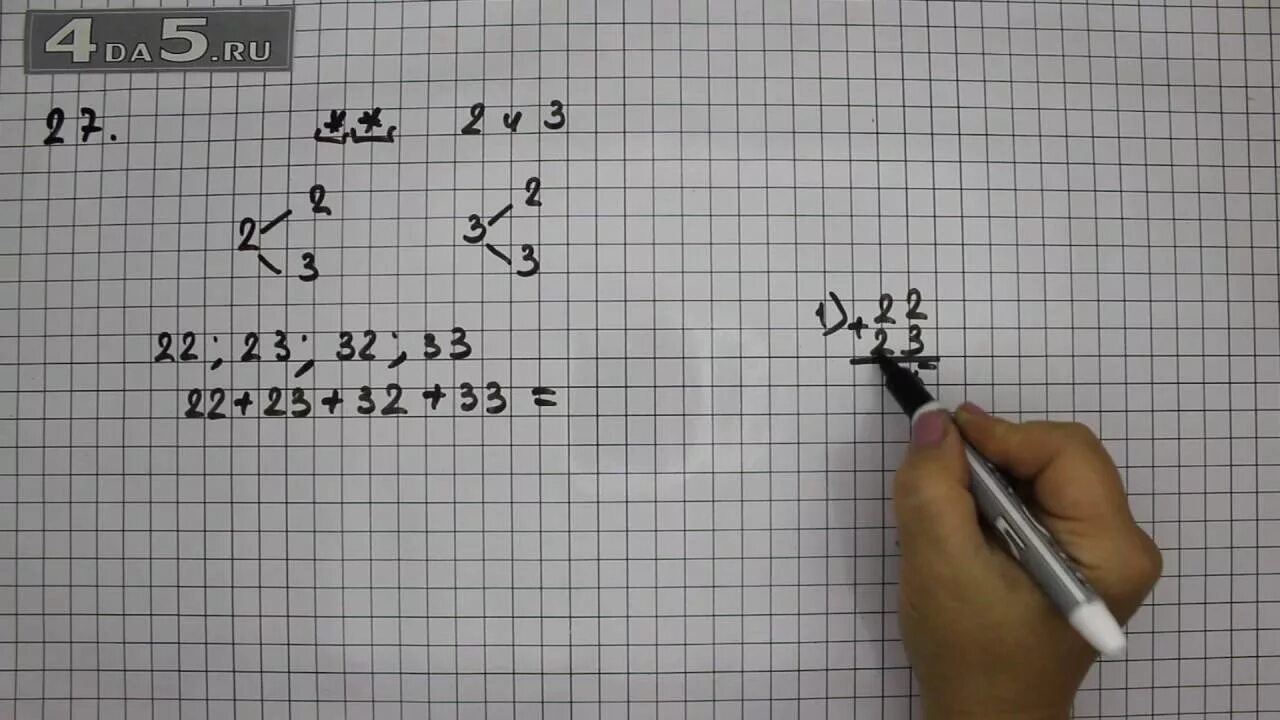 4DA5.RU
27. ** 2 и 3
2 2 3
3 2 3
22; 23; 32; 33
22+23+32+33=
1) +22
23
5